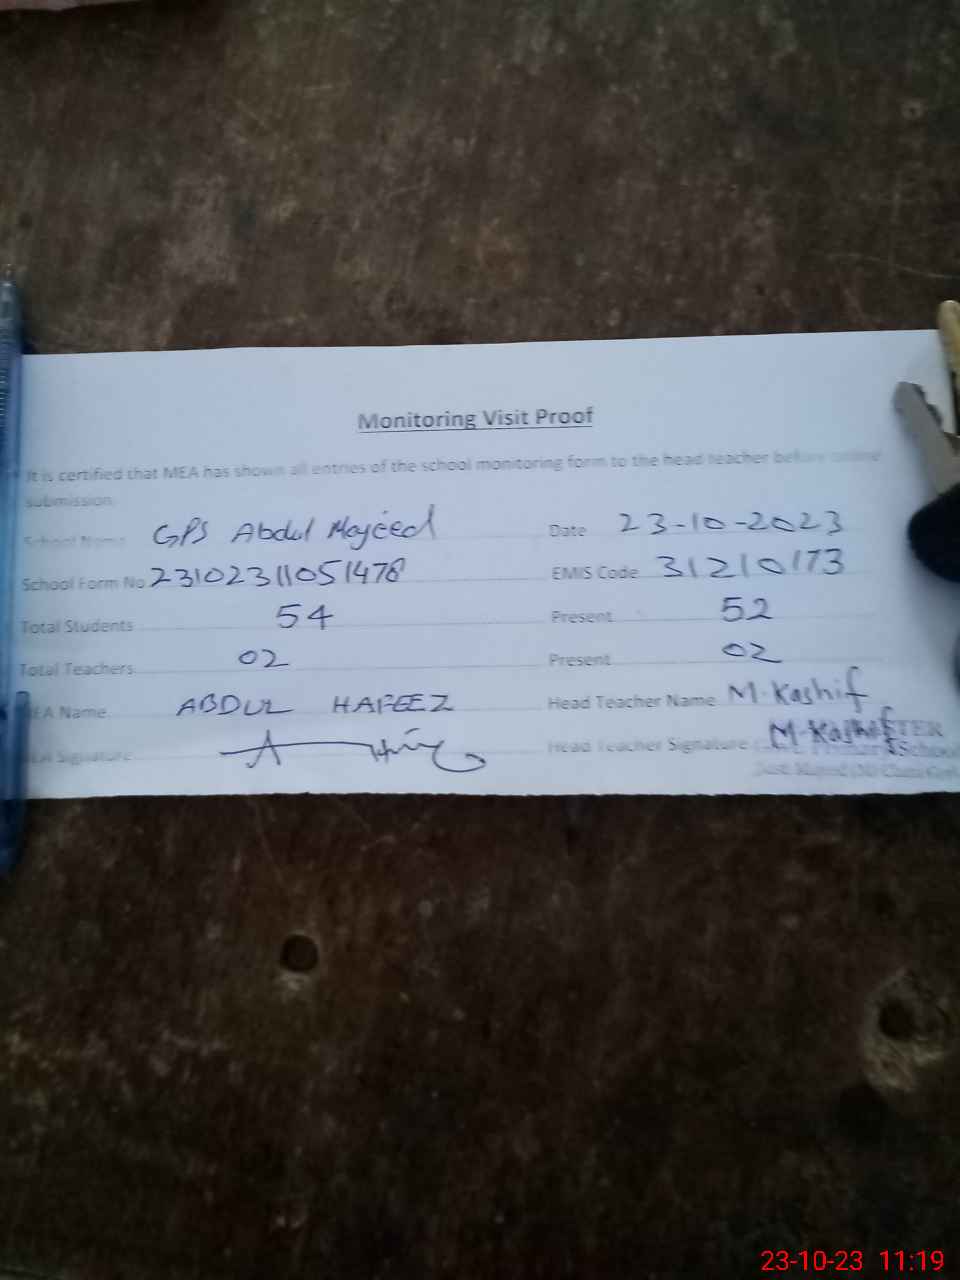 Monitoring Visit Proof
It is certified that MEA has shown all entries of the school monitoring form to the head teacher before online
submission.
School Name GPS Abdul Majeed Date 23-10-2023
School Form No 23102311051478 EMIS Code 31210173
Total Students 54 Present 52
Total Teachers 02 Present 02
MEA Name ABDUL HAFEEZ Head Teacher Name M.Kashif
MEA Signature Head Teacher Signature M-Kashif
School
23-10-23 11:19